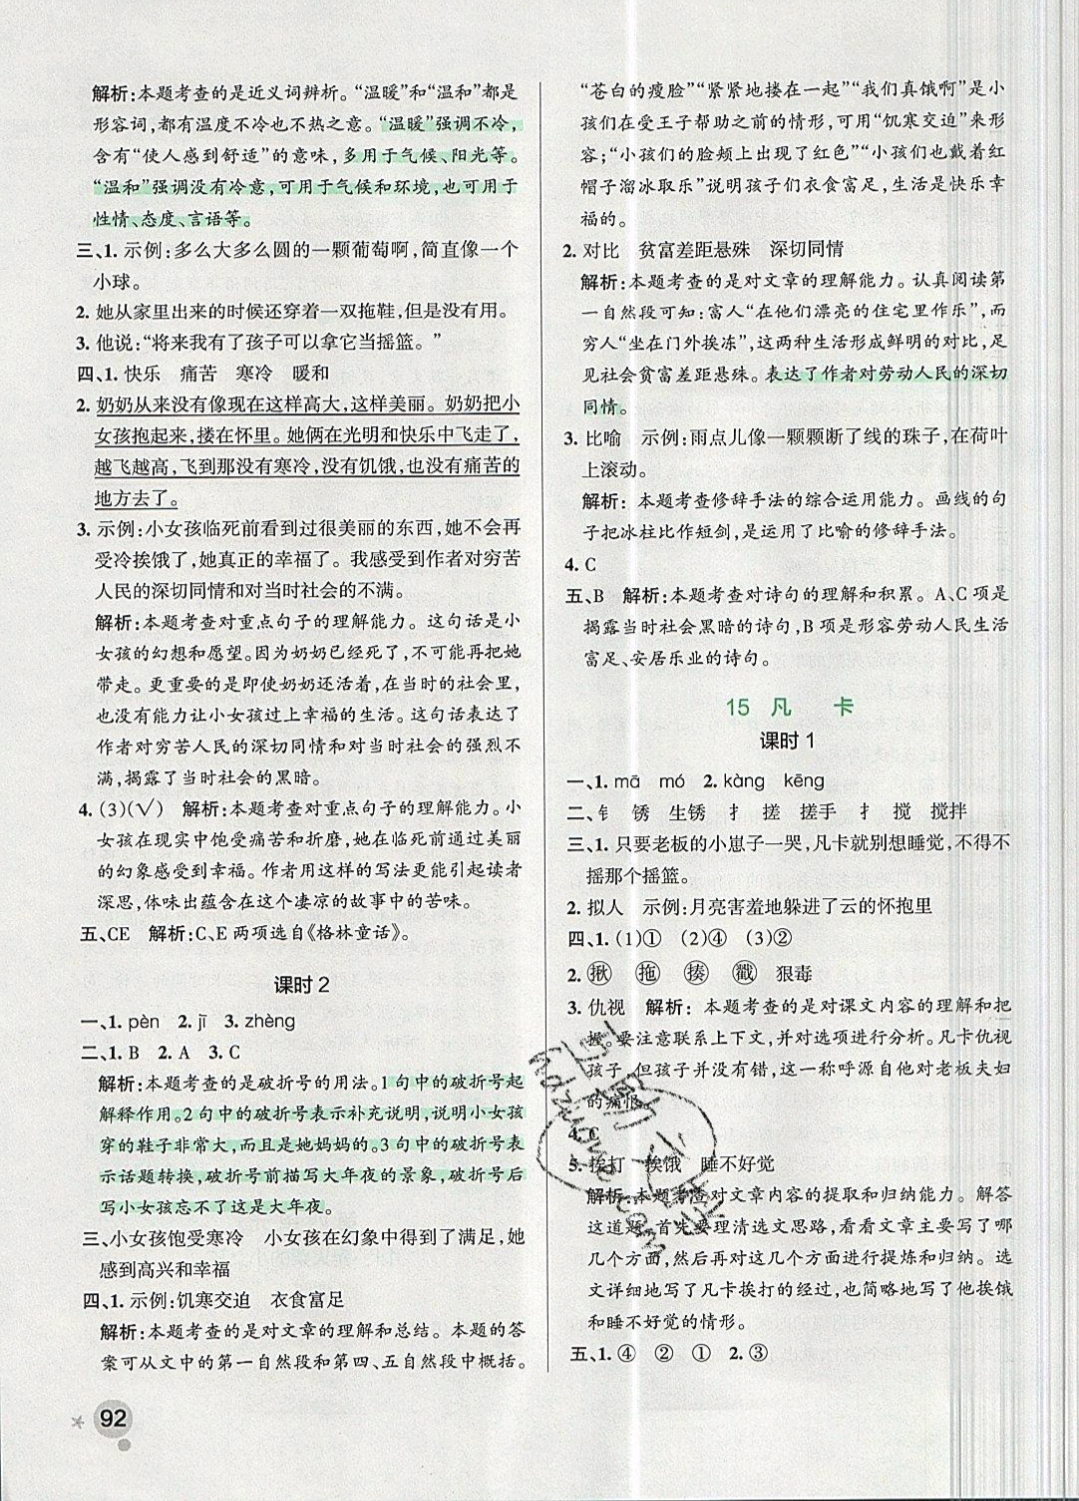 解析:本题考查的是近义词辨析。“温暖”和“温和”都是
形容词,都有温度不冷也不热之意。“温暖”强调不冷,
含有“使人感到舒适”的意味,多用于气候、阳光等。
“温和”强调没有冷意,可用于气候和环境,也可用于
性情、态度、言语等。
三、1. 示例:多么大多么圆的一颗葡萄啊,简直像一个
小球。
2. 她从家里出来的时候还穿着一双拖鞋,但是没有用。
3. 他说:“将来我有了孩子可以拿它当摇篮。”
四、1. 快乐 痛苦 寒冷 暖和
2. 奶奶从来没有像现在这样高大,这样美丽。奶奶把小
女孩抱起来,搂在怀里。她俩在光明和快乐中飞走了,
越飞越高,飞到那没有寒冷,没有饥饿,也没有痛苦的
地方去了。
3. 示例:小女孩临死前看到过很美丽的东西,她不会再
受冷挨饿了,她真正的幸福了。我感受到作者对穷苦
人民的深切同情和对当时社会的不满。
解析:本题考查对重点句子的理解能力。这句话是小
女孩的幻想和愿望。因为奶奶已经死了,不可能再把她
带走。更重要的是即使奶奶还活着,在当时的社会里,
也没有能力让小女孩过上幸福的生活。这句话表达了
作者对穷苦人民的深切同情和对当时社会的强烈不
满,揭露了当时社会的黑暗。
4. (3)(√) 解析:本题考查对重点句子的理解能力。小
女孩在现实中饱受痛苦和折磨,她在临死前通过美丽
的幻象感受到幸福。作者用这样的写法更能引起读者
深思,体味出蕴含在这个凄凉的故事中的苦味。
五、CE 解析:C、E两项选自《格林童话》。
课时2
一、1. pèn 2. jī 3. zhèng
二、1. B 2. A 3. C
解析:本题考查的是破折号的用法。1句中的破折号起
解释作用。2句中的破折号表示补充说明,说明小女孩
穿的鞋子非常大,而且是她妈妈的。3句中的破折号表
示话题转换,破折号前描写大年夜的景象,破折号后
写小女孩忘不了这是大年夜。
三、小女孩饱受寒冷 小女孩在幻象中得到了满足,她
感到高兴和幸福
四、1. 示例:饥寒交迫 衣食富足
解析:本题考查的是对文章的理解和总结。本题的答
案可从文中的第一自然段和第四、五自然段中概括。
92
“苍白的瘦脸”“紧紧地搂在一起”“我们真饿啊”是小
孩们在受王子帮助之前的情形,可用“饥寒交迫”来形
容;“小孩们的脸颊上出现了红色”“小孩们也戴着红
帽子溜冰取乐”说明孩子们衣食富足,生活是快乐幸
福的。
2. 对比 贫富差距悬殊 深切同情
解析:本题考查的是对文章的理解能力。认真阅读第
一自然段可知:富人“在他们漂亮的住宅里作乐”,而
穷人“坐在门外挨冻”,这两种生活形成鲜明的对比,足
见社会贫富差距悬殊。表达了作者对劳动人民的深切
同情。
3. 比喻 示例:雨点儿像一颗颗断了线的珠子,在荷叶
上滚动。
解析:本题考查修辞手法的综合运用能力。画线的句
子把冰柱比作短剑,是运用了比喻的修辞手法。
4. C
五、B 解析:本题考查对诗句的理解和积累。A、C项是
揭露当时社会黑暗的诗句,B项是形容劳动人民生活
富足、安居乐业的诗句。
15 凡 卡
课时1
一、1. mā mó 2. kàng kēng
二、钅 锈 生锈 扌 搓 搓手 扌 搅 搅拌
三、1. 只要老板的小崽子一哭,凡卡就别想睡觉,不得不
摇那个摇篮。
2. 拟人 示例:月亮害羞地躲进了云的怀抱里
四、1. (1)① (2)④ (3)②
2. 揪 拖 揍 戳 狠毒
3. 仇视 解析:本题考查的是对课文内容的理解和把
握。要注意联系上下文,并对选项进行分析。凡卡仇视
孩子,但孩子并没有错,这一称呼源自他对老板夫妇
的痛恨。
5. 挨打 挨饿 睡不好觉
解析:本题考查对文章内容的提取和归纳能力。解答
这道题,首先要理清选文思路,看看文章主要写了哪
几个方面,然后再对这几个方面进行提炼和归纳。选
文详细地写了凡卡挨打的经过,也简略地写了他挨饿
和睡不好觉的情形。
五、1. ④ ② ① 2. ③